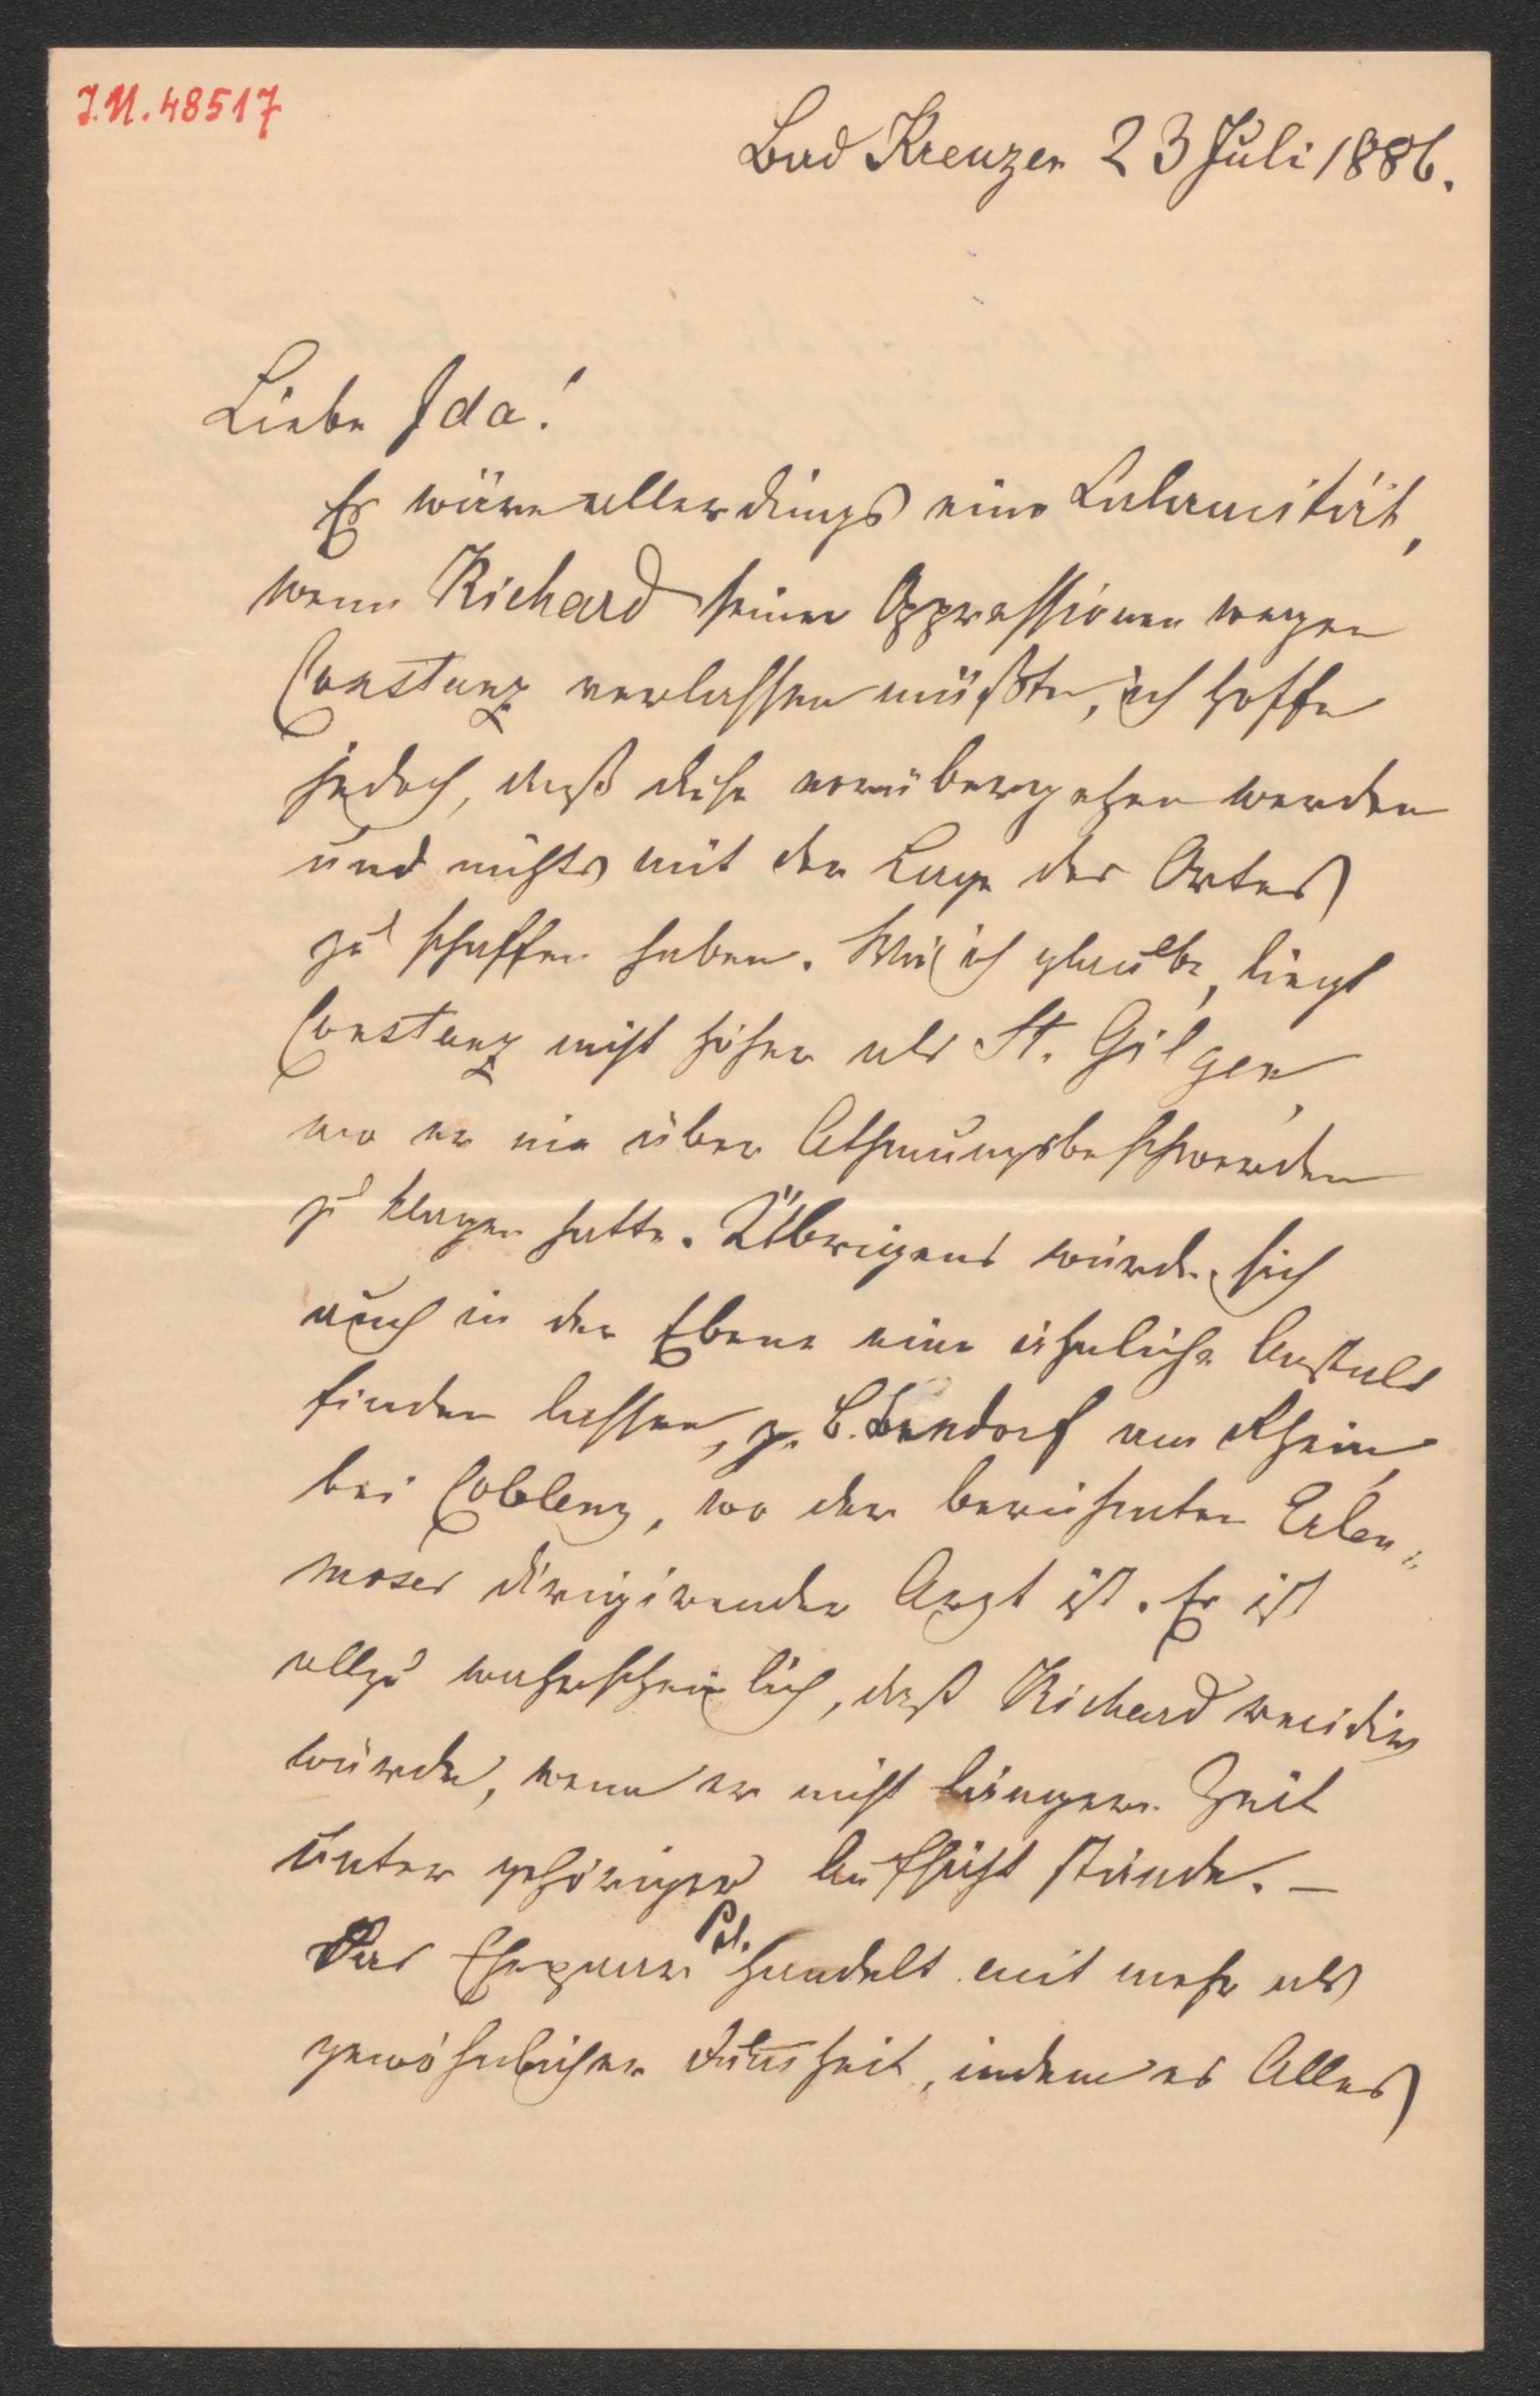 J.N. 48517
Bad Kreuzen 23 Juli 1886.
Liebe Ida!
Es wäre allerdings eine Calamität,
wenn Richard seiner Oppressionen wegen
Constanz verlassen müßte, ich hoffe
jedoch, daß diese vorübergehen werden
und nichts mit der Lage des Ortes
zu schaffen haben. Wie ich glaube, liegt
Constanz nicht höher als St. Gilgen,
wo er nie über Athmungsbeschwerden
zu klagen hatte. Übrigens würde sich
auch in der Ebene eine ähnliche Anstalt
finden lassen, z. B. Bendorf am Rhein,
bei Coblenz, wo der berühmte Erlen-
moser dirigirender Arzt ist. Es ist
allzu wahrscheinlich, daß Richard recidiv
würde, wenn er nicht längere Zeit
unter gehöriger Aufsicht stünde. –
Das Ehepaar Pd. handelt mit mehr als
gewöhnlicher Dummheit, indem es Alles